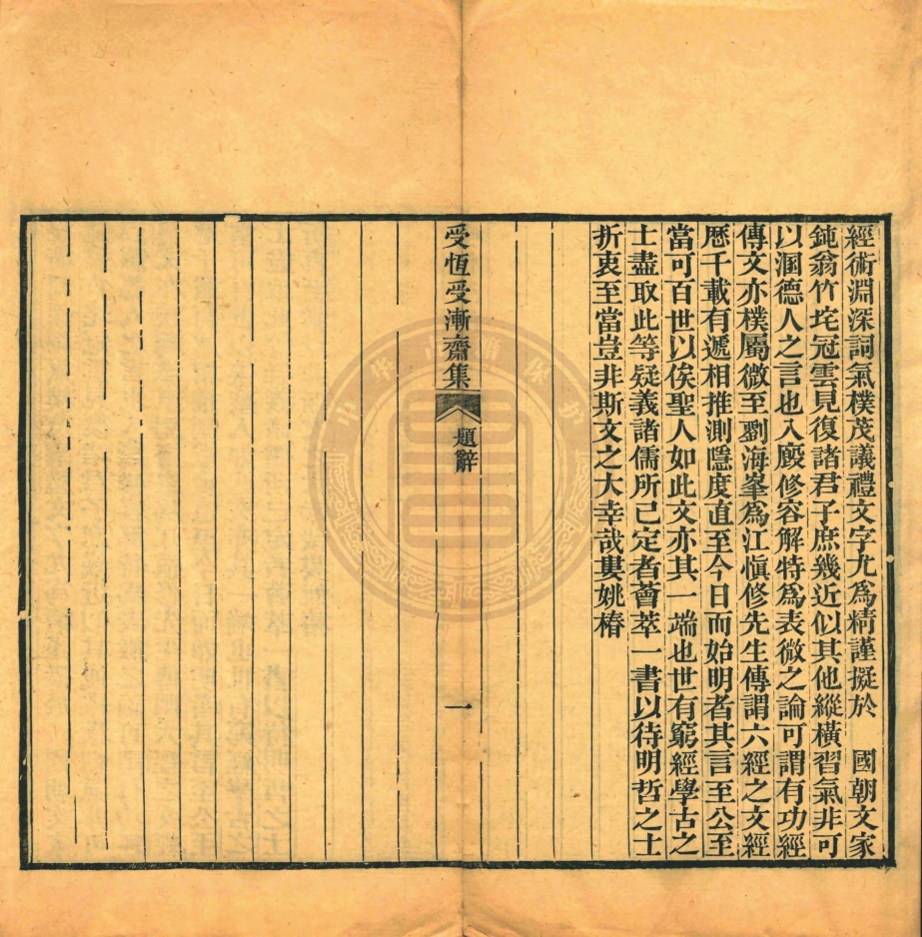 經術淵深詞氣樸茂議禮文字尤爲精謹擬於　國朝文家
鈍翁竹垞冠雲見復諸君子庶幾近似其他縱橫習氣非可
以溷德人之言也入廄修容解特爲表微之論可謂有功經
傳文亦樸屬微至劉海峯爲江愼修先生傳謂六經之文經
厯千載有遞相推測隱度直至今日而始明者其言至公至
當可百世以俟聖人如此文亦其一端也世有窮經學古之
士盡取此等疑義諸儒所已定者薈萃一書以待明哲之士
折衷至當豈非斯文之大幸哉婁姚椿
受恆受漸齋集
題辭
一